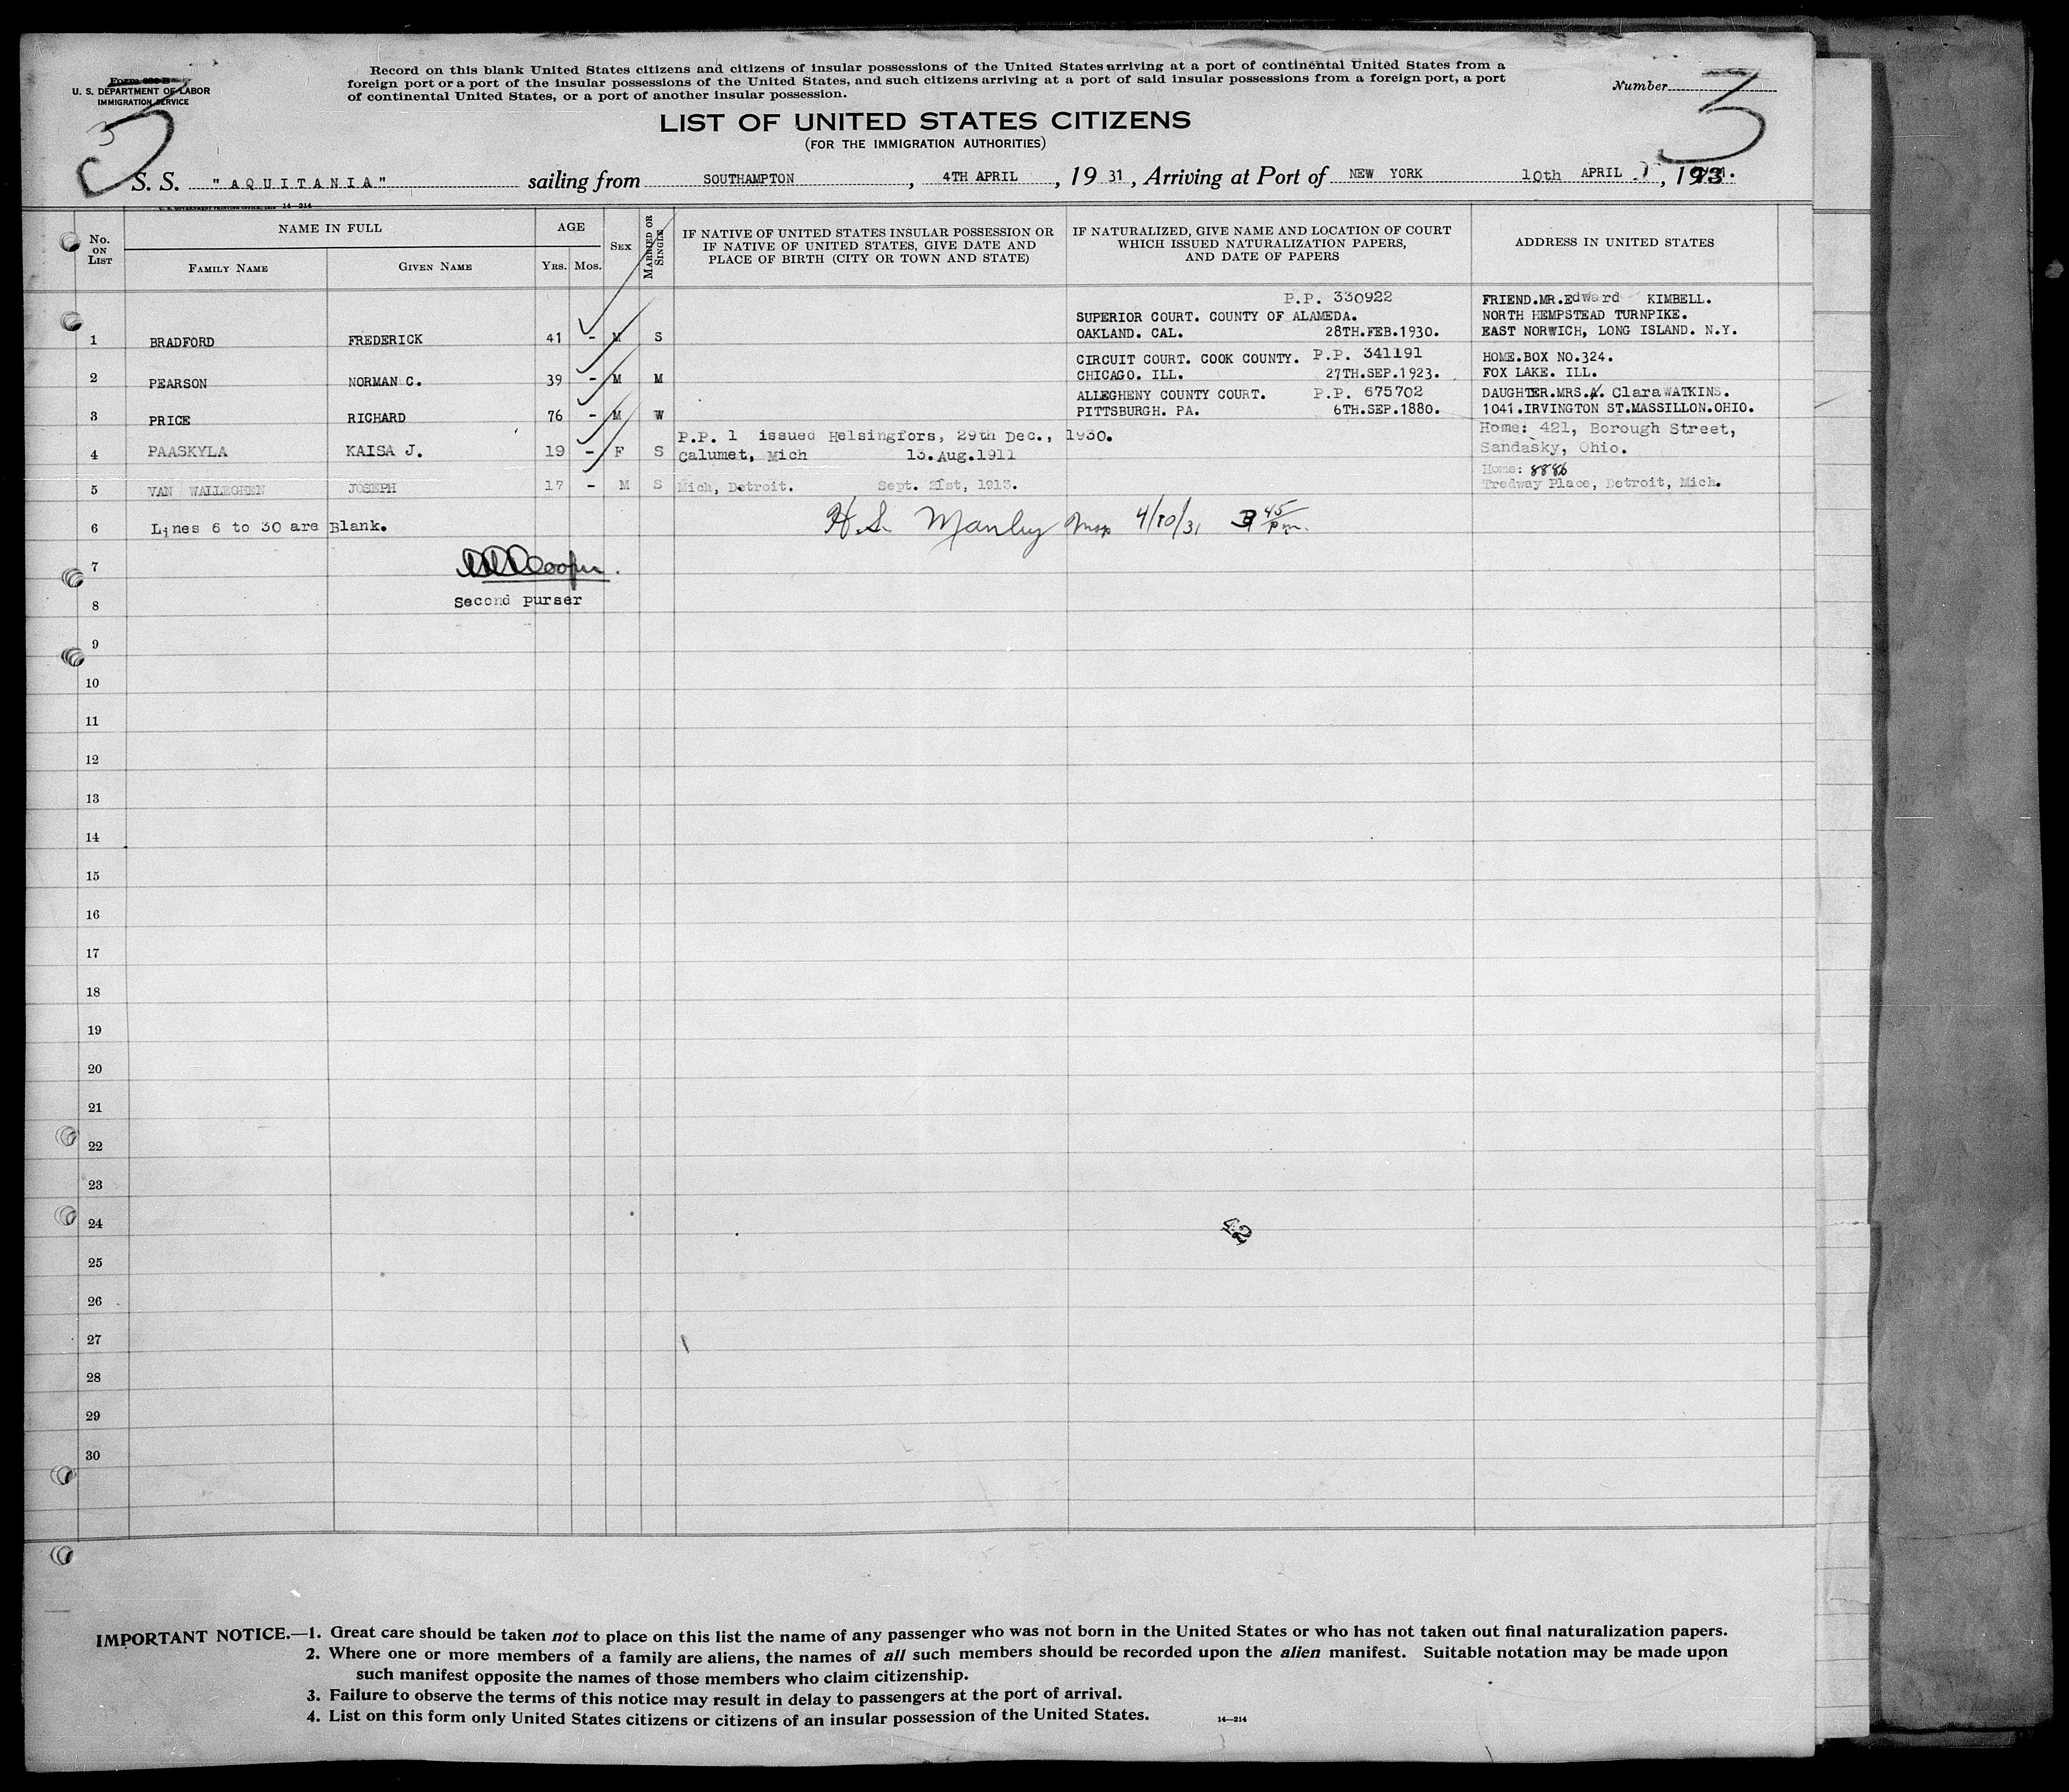 Record on this blank United States citizens and citizens of insular possessions of the United States arriving at a port of continental United States from a
foreign port or a port of the insular possessions of the United States, and such citizens arriving at a port of said insular possessions from a foreign port, a port
of continental United States, or a port of another insular possession.
U. S. DEPARTMENT OF LABOR
IMMIGRATION SERVICE
3
3
Number 3
LIST OF UNITED STATES CITIZENS
(FOR THE IMMIGRATION AUTHORITIES)
S. S. "AQUITANIA" sailing from SOUTHAMPTON, 4TH APRIL, 19 31, Arriving at Port of NEW YORK 10th APRIL, 1931.
14—214
No. ON LIST
NAME IN FULL
FAMILY NAME GIVEN NAME
AGE
YRS. MOS.
SEX
MARRIED OR SINGLE
IF NATIVE OF UNITED STATES INSULAR POSSESSION OR
IF NATIVE OF UNITED STATES, GIVE DATE AND
PLACE OF BIRTH (CITY OR TOWN AND STATE)
IF NATURALIZED, GIVE NAME AND LOCATION OF COURT
WHICH ISSUED NATURALIZATION PAPERS,
AND DATE OF PAPERS
ADDRESS IN UNITED STATES
P.P. 330922 FRIEND.MR.Edward KIMBELL.
SUPERIOR COURT. COUNTY OF ALAMEDA. NORTH HEMPSTEAD TURNPIKE.
1 BRADFORD FREDERICK 41 - M S OAKLAND. CAL. 28TH.FEB.1930. EAST NORWICH, LONG ISLAND. N.Y.
CIRCUIT COURT. COOK COUNTY. P.P. 341191 HOME.BOX NO.324.
2 PEARSON NORMAN C. 39 - M M CHICAGO. ILL. 27TH.SEP.1923. FOX LAKE. ILL.
ALLEGHENY COUNTY COURT. P.P. 675702 DAUGHTER.MRS. Clara WATKINS.
3 PRICE RICHARD 76 - M W PITTSBURGH. PA. 6TH.SEP.1880. 1041.IRVINGTON ST.MASSILLON.OHIO.
P.P. 1 issued Helsingfors, 29th Dec., 1930. Home: 421, Borough Street,
4 PAASKYLA KAISA J. 19 - F S Calumet, Mich 13.Aug.1911 Sandasky, Ohio.
Home: 8886
5 VAN WALLEGHEN JOSEPH 17 - M S Mich, Detroit. Sept. 21st, 1913. Tredway Place, Detroit, Mich.
6 Lines 6 to 30 are Blank. H.S. Manley 4/10/31 3 45 pm.
7
Second purser
8
9
10
11
12
13
14
15
16
17
18
19
20
21
22
23
24 42
25
26
27
28
29
30
IMPORTANT NOTICE.—1. Great care should be taken not to place on this list the name of any passenger who was not born in the United States or who has not taken out final naturalization papers.
2. Where one or more members of a family are aliens, the names of all such members should be recorded upon the alien manifest. Suitable notation may be made upon
such manifest opposite the names of those members who claim citizenship.
3. Failure to observe the terms of this notice may result in delay to passengers at the port of arrival.
4. List on this form only United States citizens or citizens of an insular possession of the United States. 14—214